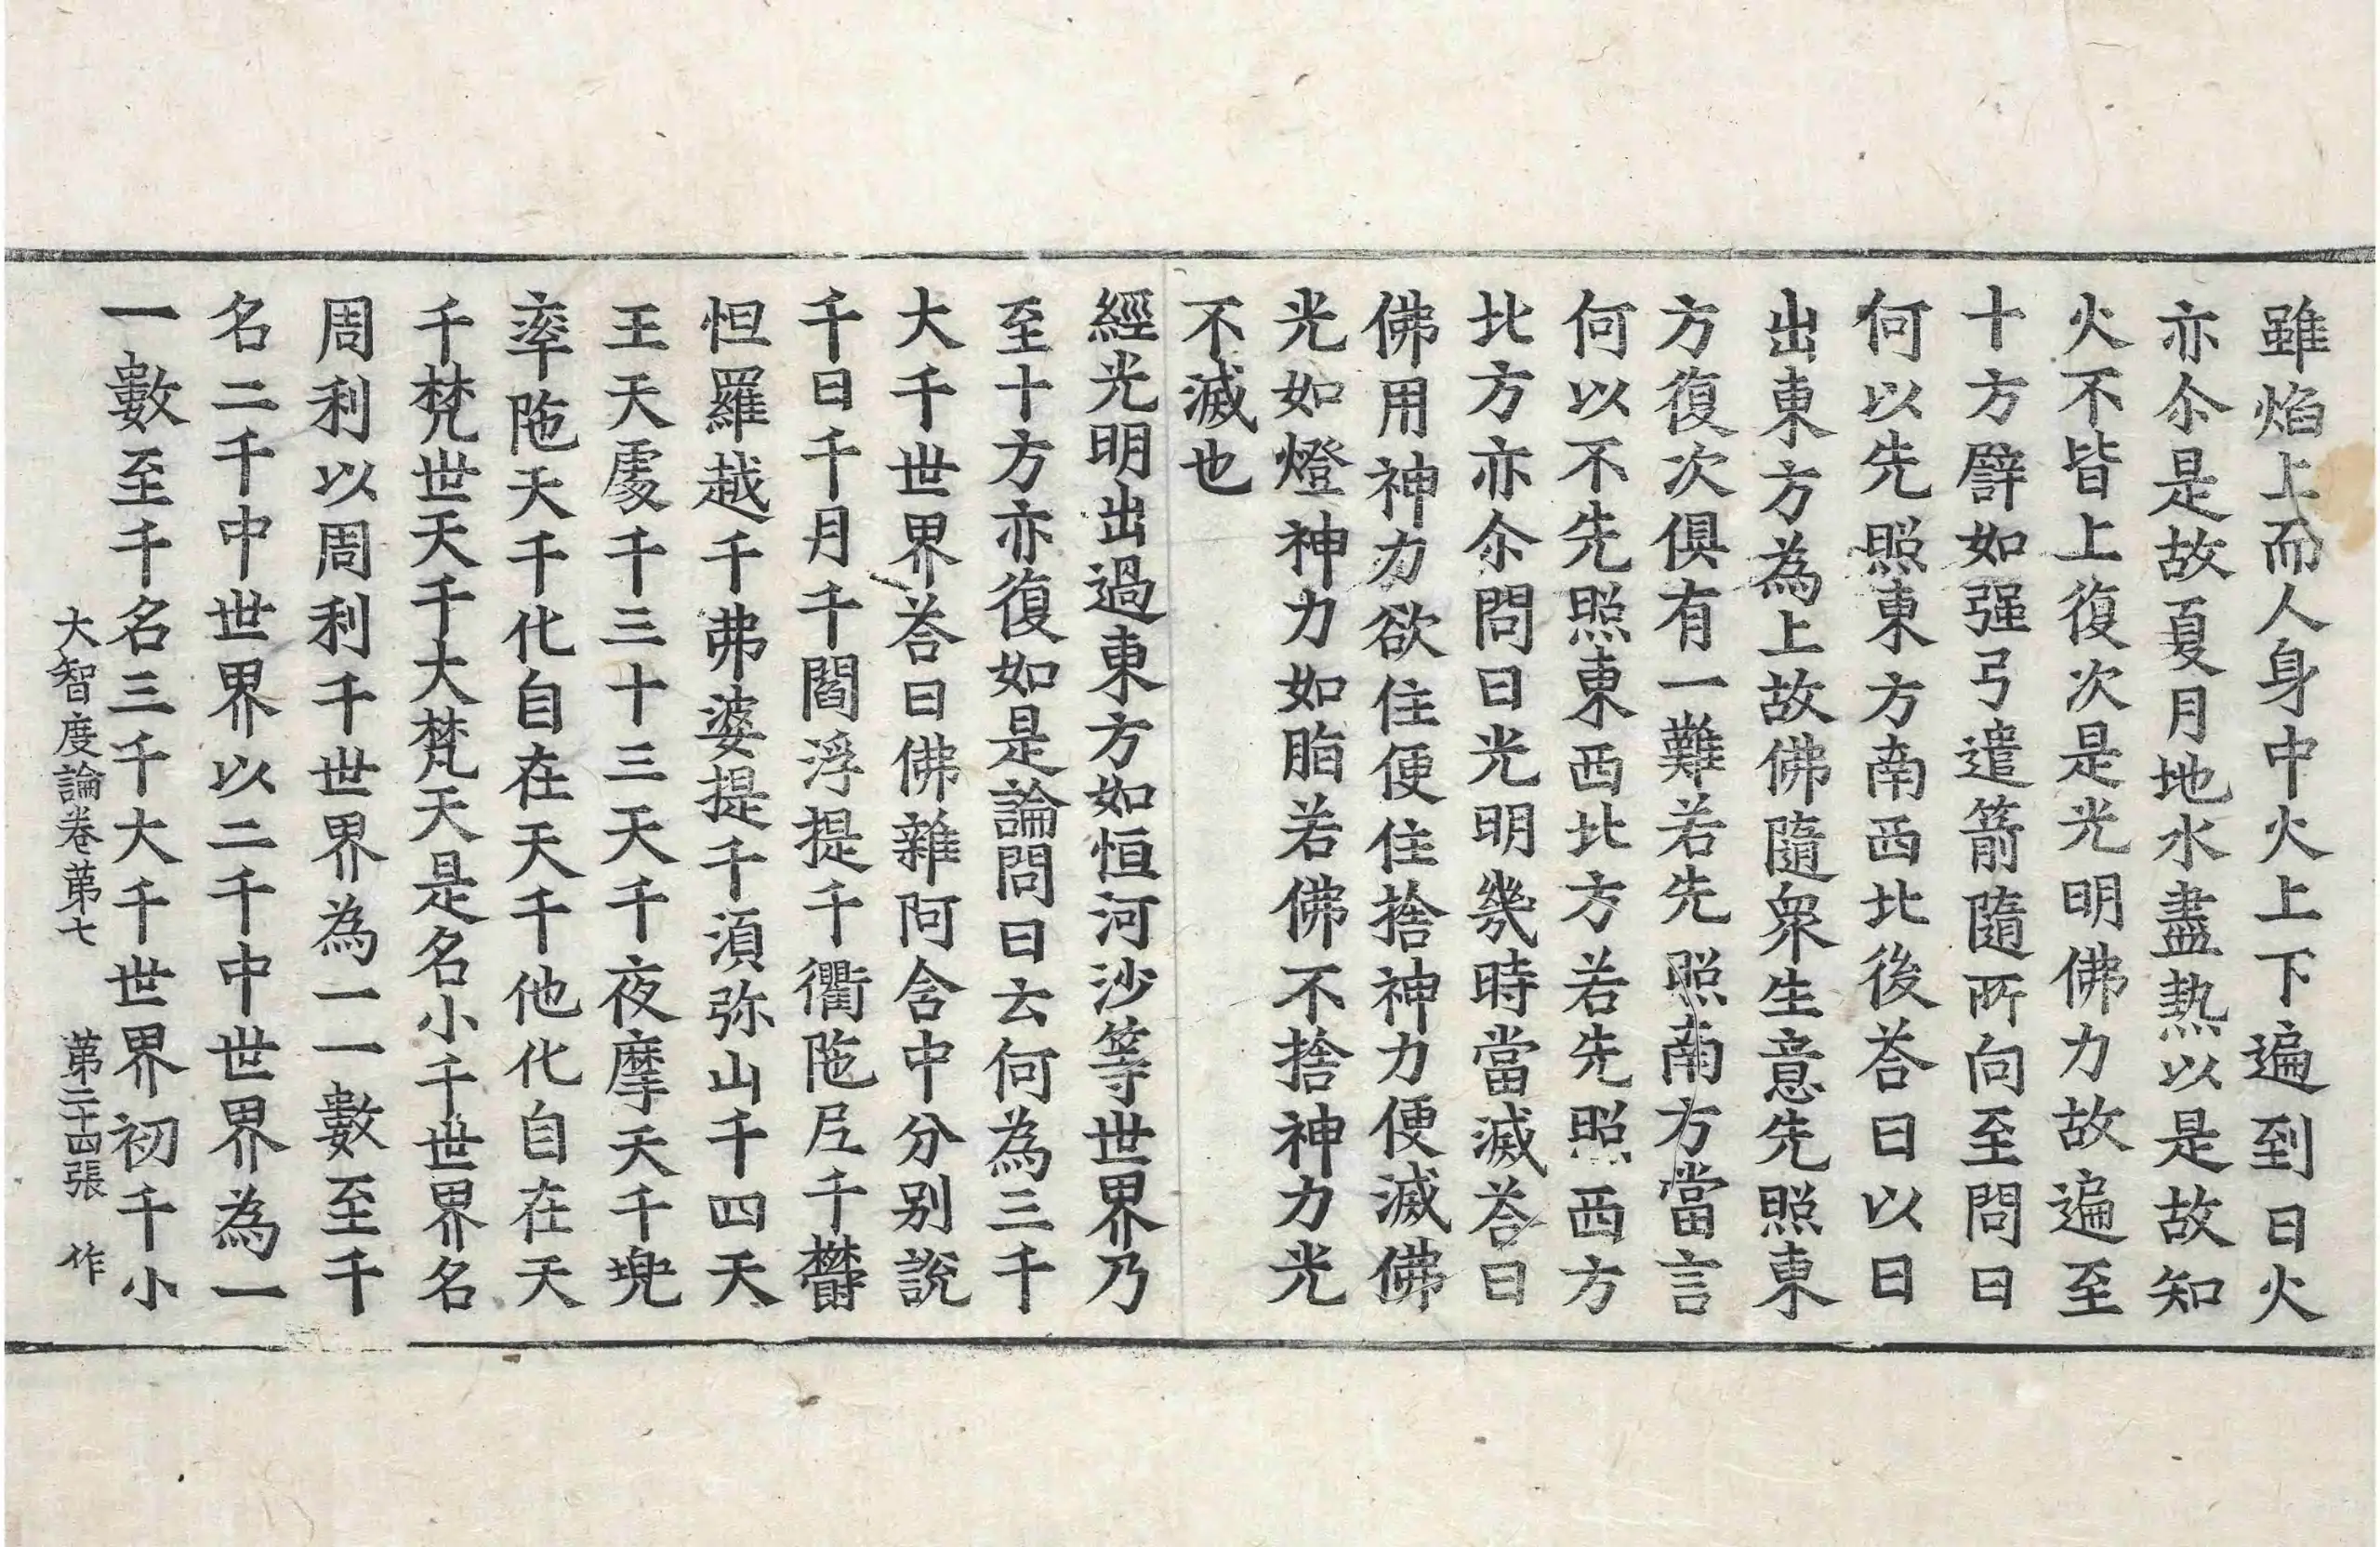 雖焰上而人身中火上下遍到日火
亦尒是故夏月地水盡熱以是故知
火不皆上復次是光明佛力故遍至
十方譬如强弓遣箭隨所向至問曰
何以先照東方南西北後荅曰以日
出東方為上故佛隨衆生意先照東
方復次俱有一難若先照南方當言
何以不先照東西北方若先照西方
北方亦尒問曰光明幾時當滅荅曰
佛用神力欲住便住捨神力便滅佛
光如燈神力如脂若佛不捨神力光
不滅也
經光明出過東方如恒河沙等世界乃
至十方亦復如是論問曰云何為三千
大千世界荅曰佛雜阿含中分别說
千日千月千閻浮提千衢陁尼千欝
怛羅越千弗婆提千湏弥山千四天
王天處千三十三天千夜摩天千兜
率陁天千化自在天千他化自在天
千梵世天千大梵天是名小千世界名
周利以周利千世界為一一數至千
名二千中世界以二千中世界為一
一數至千名三千大千世界初千小
大智度論卷苐七 苐二十四張 作